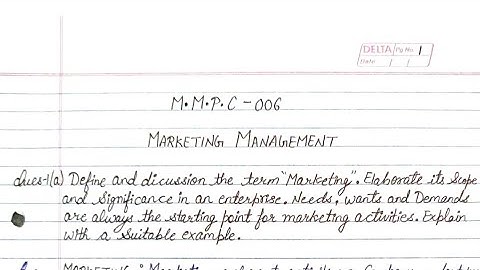 DELTA Pg No. 1
Date
M.M.P.C - 006
MARKETING MANAGEMENT
Ques-1(a) Define and dicussion the term "Marketing". Elaborate its Scope
and Significance in an enterprise. Needs, wants and Demands
are always the starting point for marketing activities. Explain
with a suitable example.